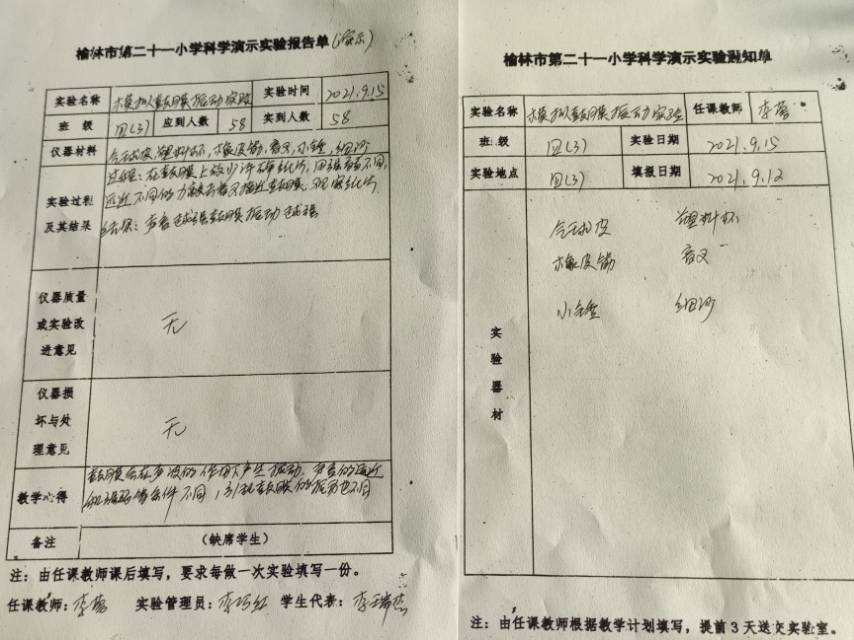 榆林市第二十一小学科学演示实验报告单(演示)
实验名称 模拟鼓膜振动实验 实验时间 2021.9.15
班 级 四(3) 应到人数 58 实到人数 58
仪器材料 气球皮,塑料杯,橡皮筋,音叉,小锤,细沙
实验过程及其结果
过程:在鼓膜上放少许细沙,用强弱不同,
远近不同的力敲击音叉靠近鼓膜,观察细沙
结果:声音越强鼓膜振动越强
仪器质量
或实验改
进意见
无
仪器损
坏与处
理意见
无
教学心得
鼓膜会在声波的作用下产生振动,声音的远近
和强弱等条件不同,引起鼓膜的振动也不同
备注 (缺席学生)
注:由任课教师课后填写,要求每做一次实验填写一份。
任课教师: 实验管理员: 学生代表:
榆林市第二十一小学科学演示实验通知单
实验名称 模拟鼓膜振动实验 任课教师
班 级 四(3) 实验日期 2021.9.15
实验地点 四(3) 填报日期 2021.9.12
实验器材
气球皮 塑料杯
橡皮筋 音叉
小锤 细沙
注:由任课教师根据教学计划填写,提前3天送交实验室。